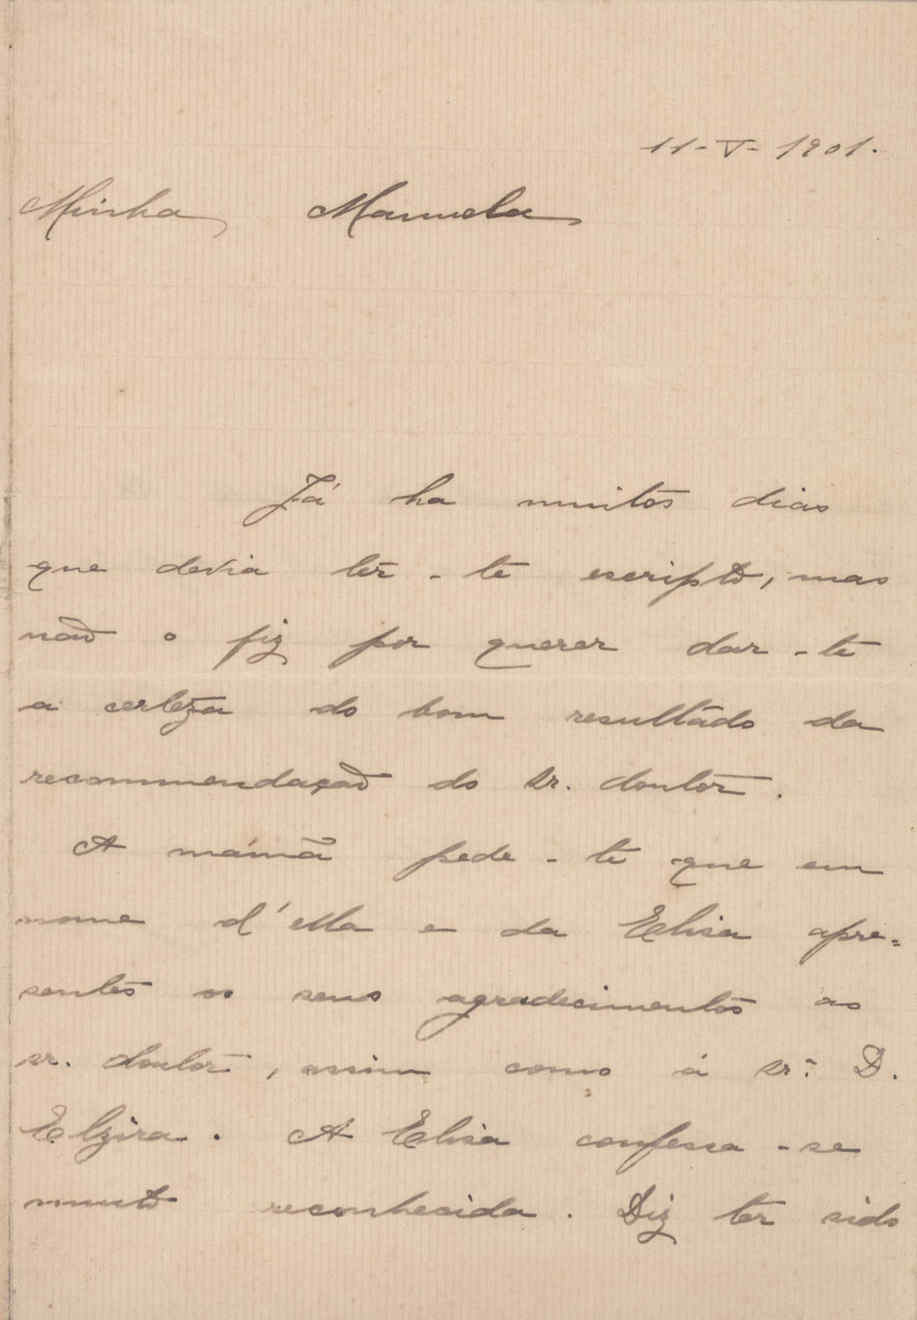 11-V-1901.
Minha Manuela
Já ha muitos dias
que devia ter-te escripto, mas
não o fiz por querer dar-te
a certeza do bom resultado da
recommendação do Sr. doutor.
A mamã pede-te que em
nome d'ella e da Elisa apre=
sentes os seus agradecimentos ao
sr. doutor, assim como á Srª D.
Elzira. A Elisa confessa-se
muito reconhecida. Diz ter sido